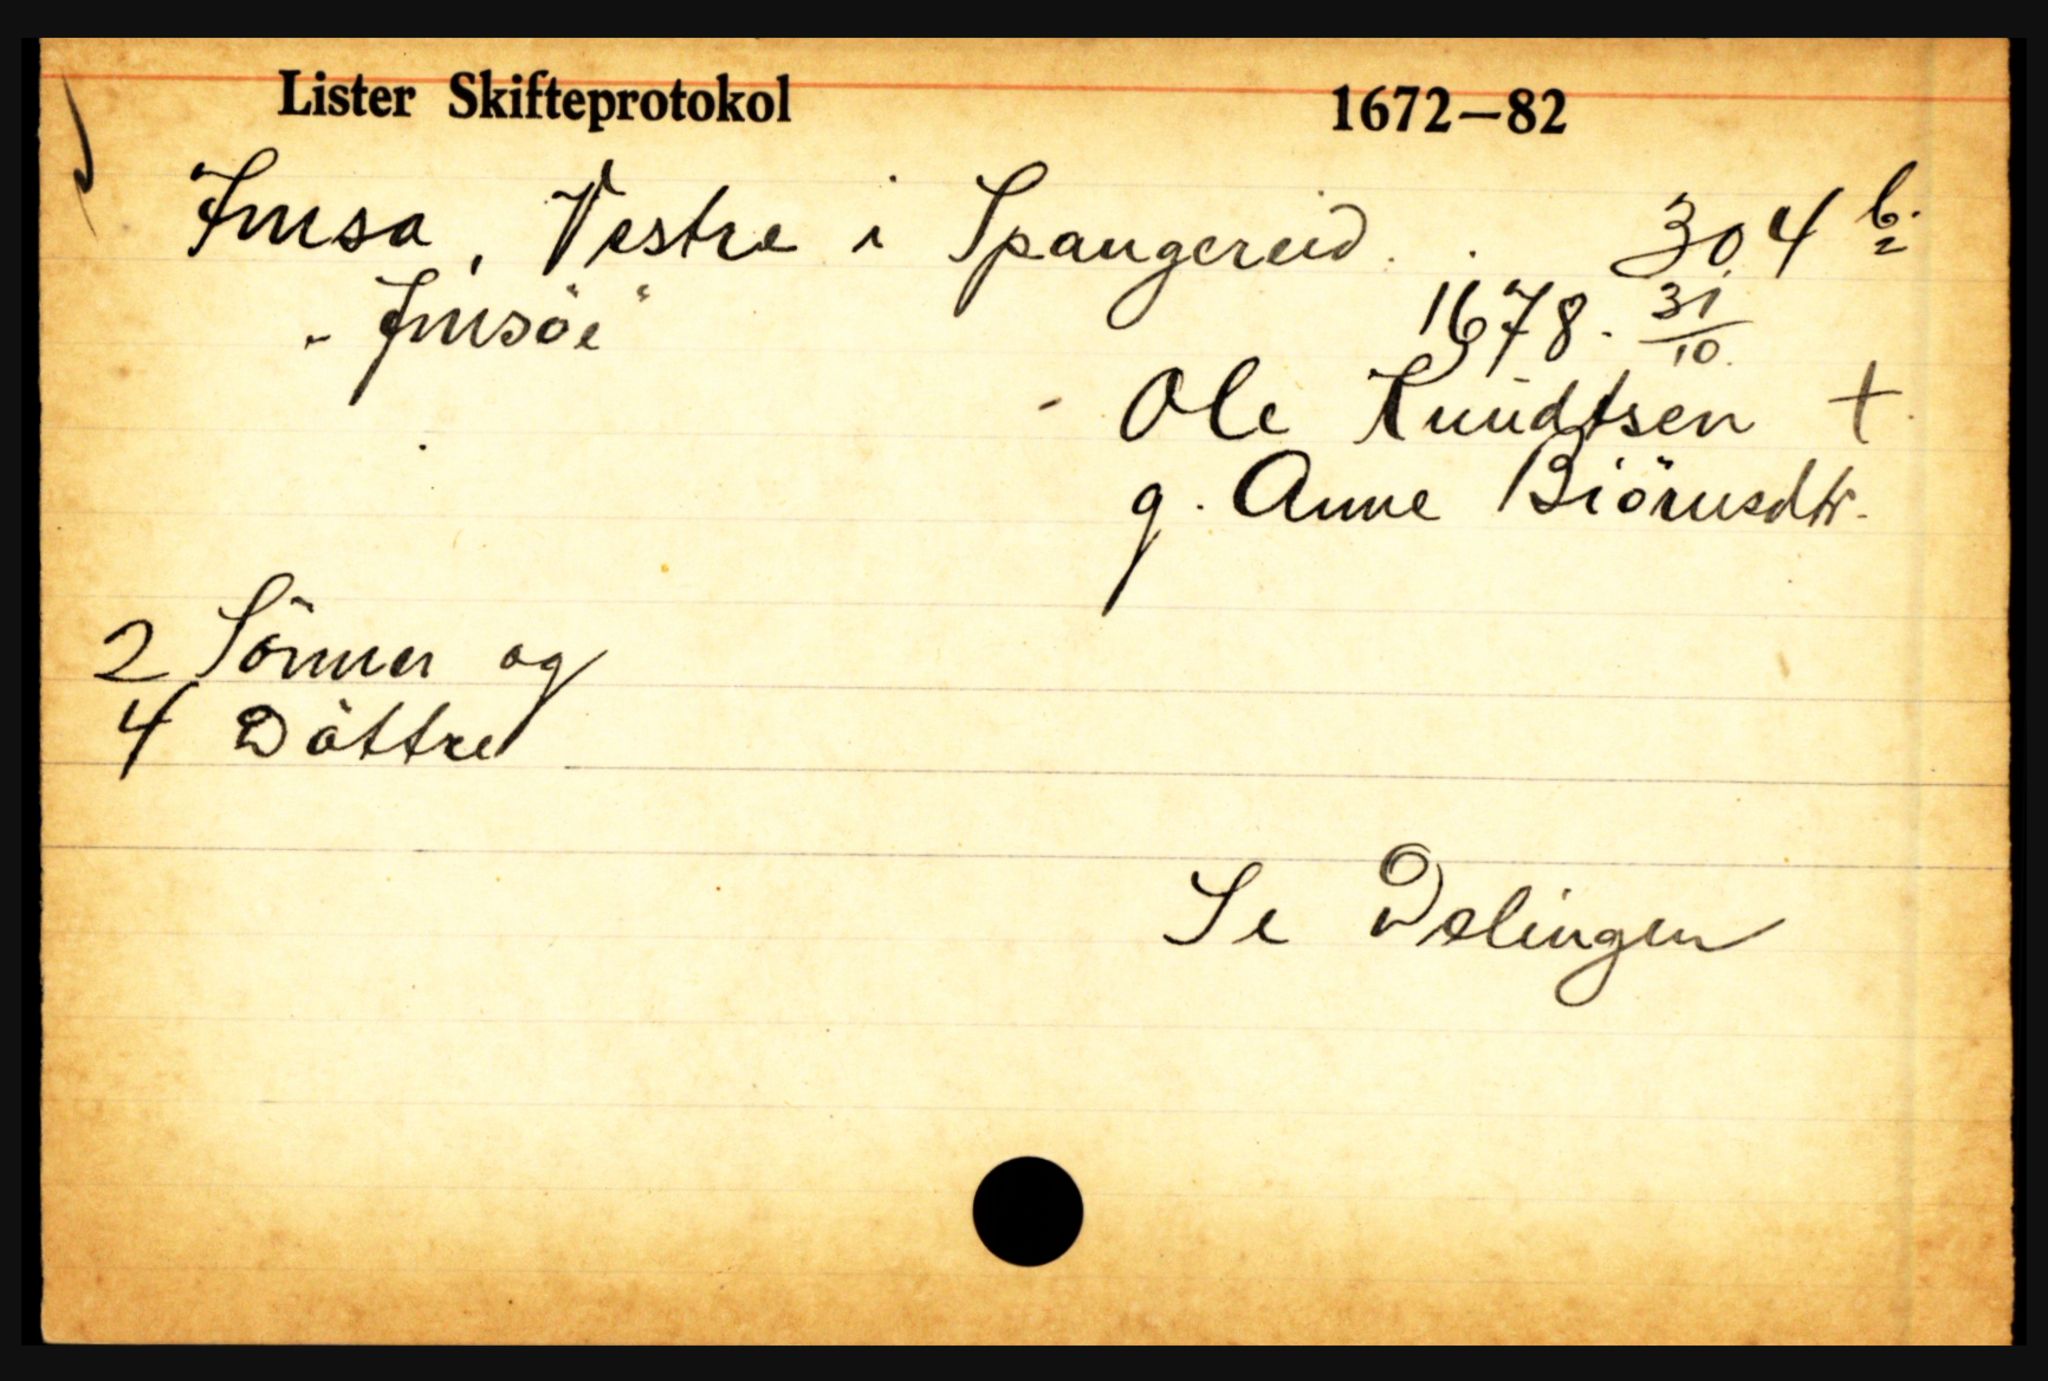 Lister Skifteprotokol 1672—82
Jmsa, Vestre i Spangereid. 304 b. 2
„ Jmsöe"
1678. 31/10.
Ole Knudtsen †
g. Anne Biörnsdtr.
2 Sönner og
4 Döttre
Se Delingen